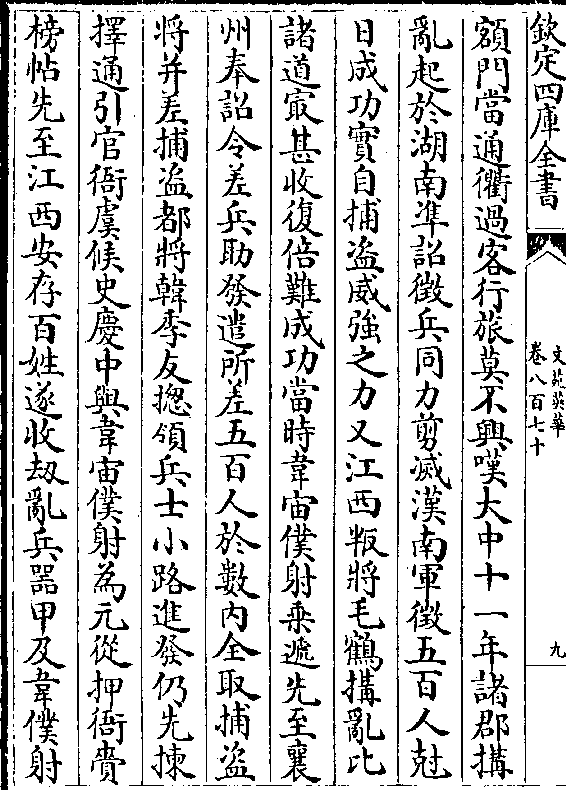 欽定四庫全書
文苑英華
卷八百七十
九
額門當通衢過客行旅莫不興嘆大中十一年諸郡搆
亂起於湖南準詔徵兵同力剪滅漢南軍徵五百人尅
日成功實自捕盜威強之力又江西叛將毛鶴搆亂比
諸道㝡甚收復倍難成功當時韋宙僕射乗遞先至襄
州奉詔令差兵助發遣所差五百人於數内全取捕盜
将并差捕盜都將韓季友揔領兵士小路進發仍先揀
擇通引官衙虞候史慶中與韋宙僕射為元從押衙賫
榜帖先至江西安存百姓遂收刼亂兵器甲及韋僕射